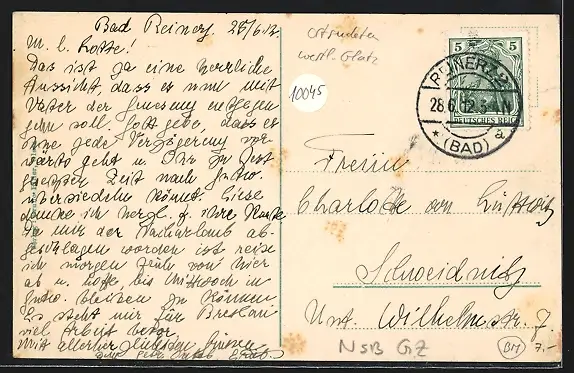 Bad Reinerz. 28/6.12.
M. l. Lotte!
Das ist ja eine herrliche
Aussicht, dass es nun mit
Vater der Genesung entgegen
gehen soll. Gott gebe, dass es
ohne jede Verzögerung vor-
wärts geht u. Ihr zu
Zeit nach
übersiedeln könnt. Liese
danke ich herzl. f. ihre Karte
Da mir der Nachurlaub ab-
geschlagen worden ist reise
ich morgen früh von hier
ab u. hoffe, bis Mittwoch in
bleiben zu können.
Es steht mir für Breslau
viel Arbeit bevor.
Mit allerherzlichsten Grüssen
Ortsrudeten
westl. Glatz
10045
5 5
DEUTSCHES REICH
REINERZ
28.6.12.3-4N
* (BAD) a
Freiin
Charlotte von Lüttwitz
Schweidnitz
Unt. Wilhelmstr. 7.
NSB GZ
BM
7.-